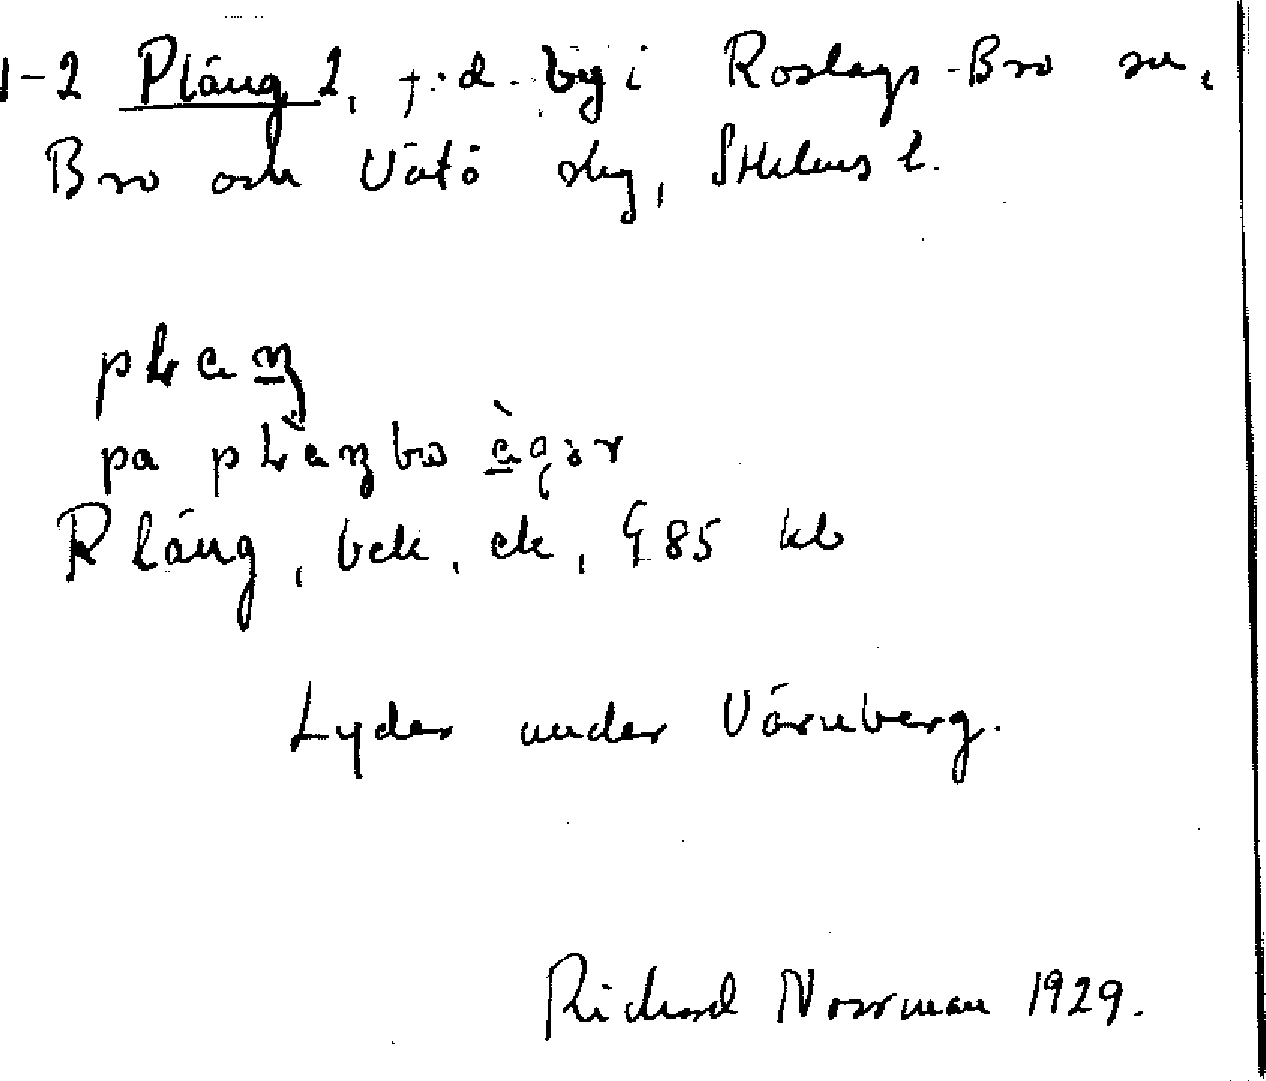 1-2 Pläng 2, f.d. by i Roslags-Bro sn,
Bro och Vätö skg, Sthlms l.
pa
Pläng, bek, ek, § 85 kb
Lyder under Värnberg.
Richard Norrman 1929.